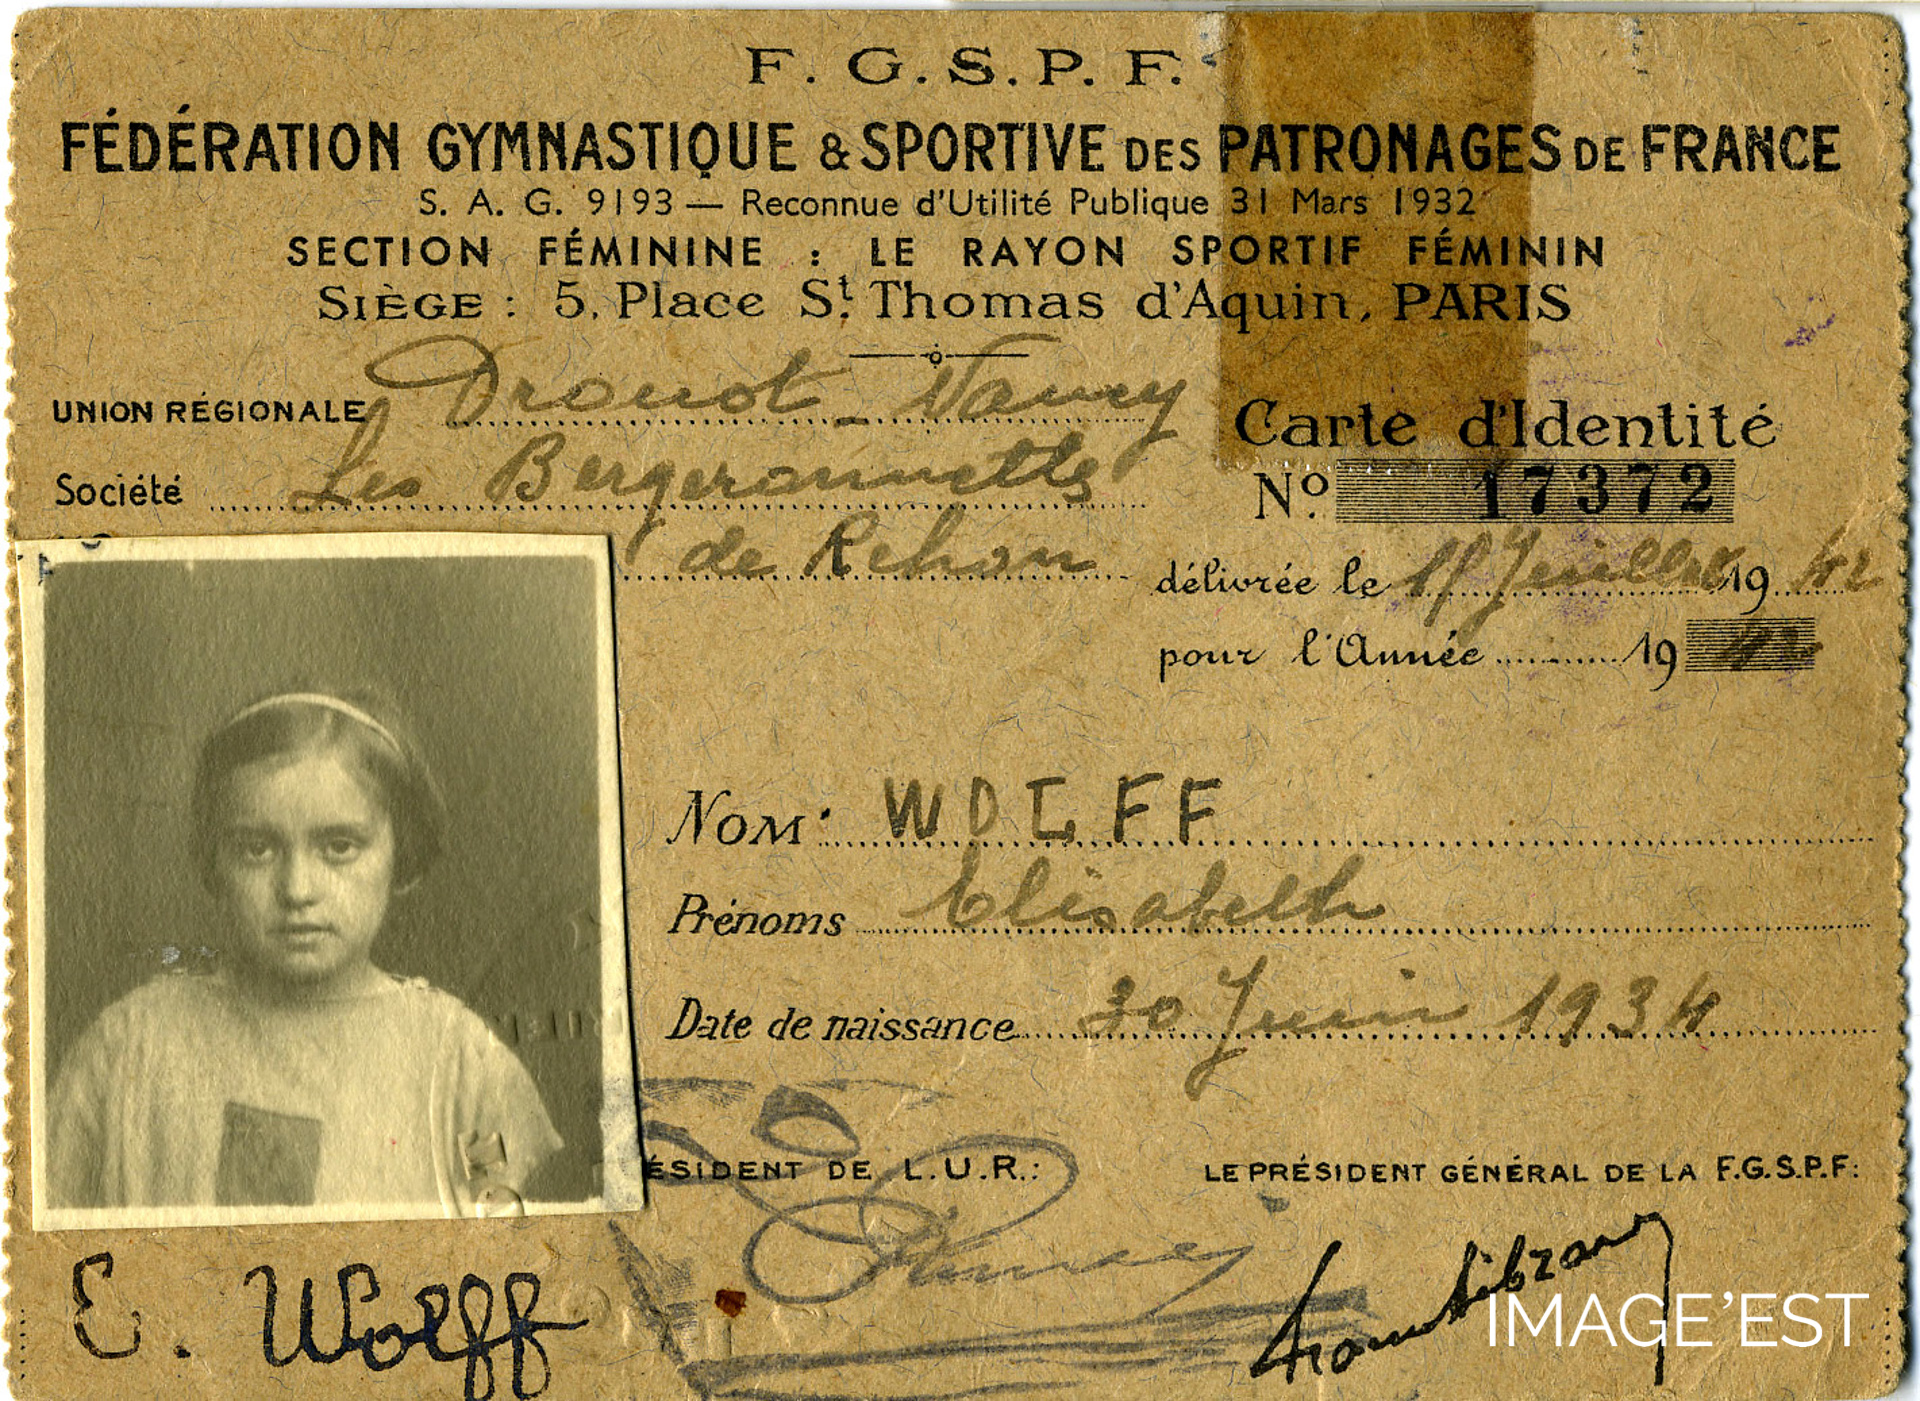 F. G. S. P. F.
FÉDÉRATION GYMNASTIQUE & SPORTIVE DES PATRONAGES DE FRANCE
S. A. G. 9193 — Reconnue d'Utilité Publique 31 Mars 1932
SECTION FÉMININE : LE RAYON SPORTIF FÉMININ
SIÈGE : 5, Place St. Thomas d'Aquin, PARIS
UNION RÉGIONALE Drouot - Nancy
Carte d'Identité
Société Les Bergeronnettes
No. 17372
de Rehon
délivrée le Juillet 1942
pour l'Année 1942
NOM: WOLFF
Prénoms Elisabeth
Date de naissance 30 Juin 1934
ÉSIDENT DE L.U.R.:
LE PRÉSIDENT GÉNÉRAL DE LA F.G.S.P.F:
E. Wolff
IMAGE'EST